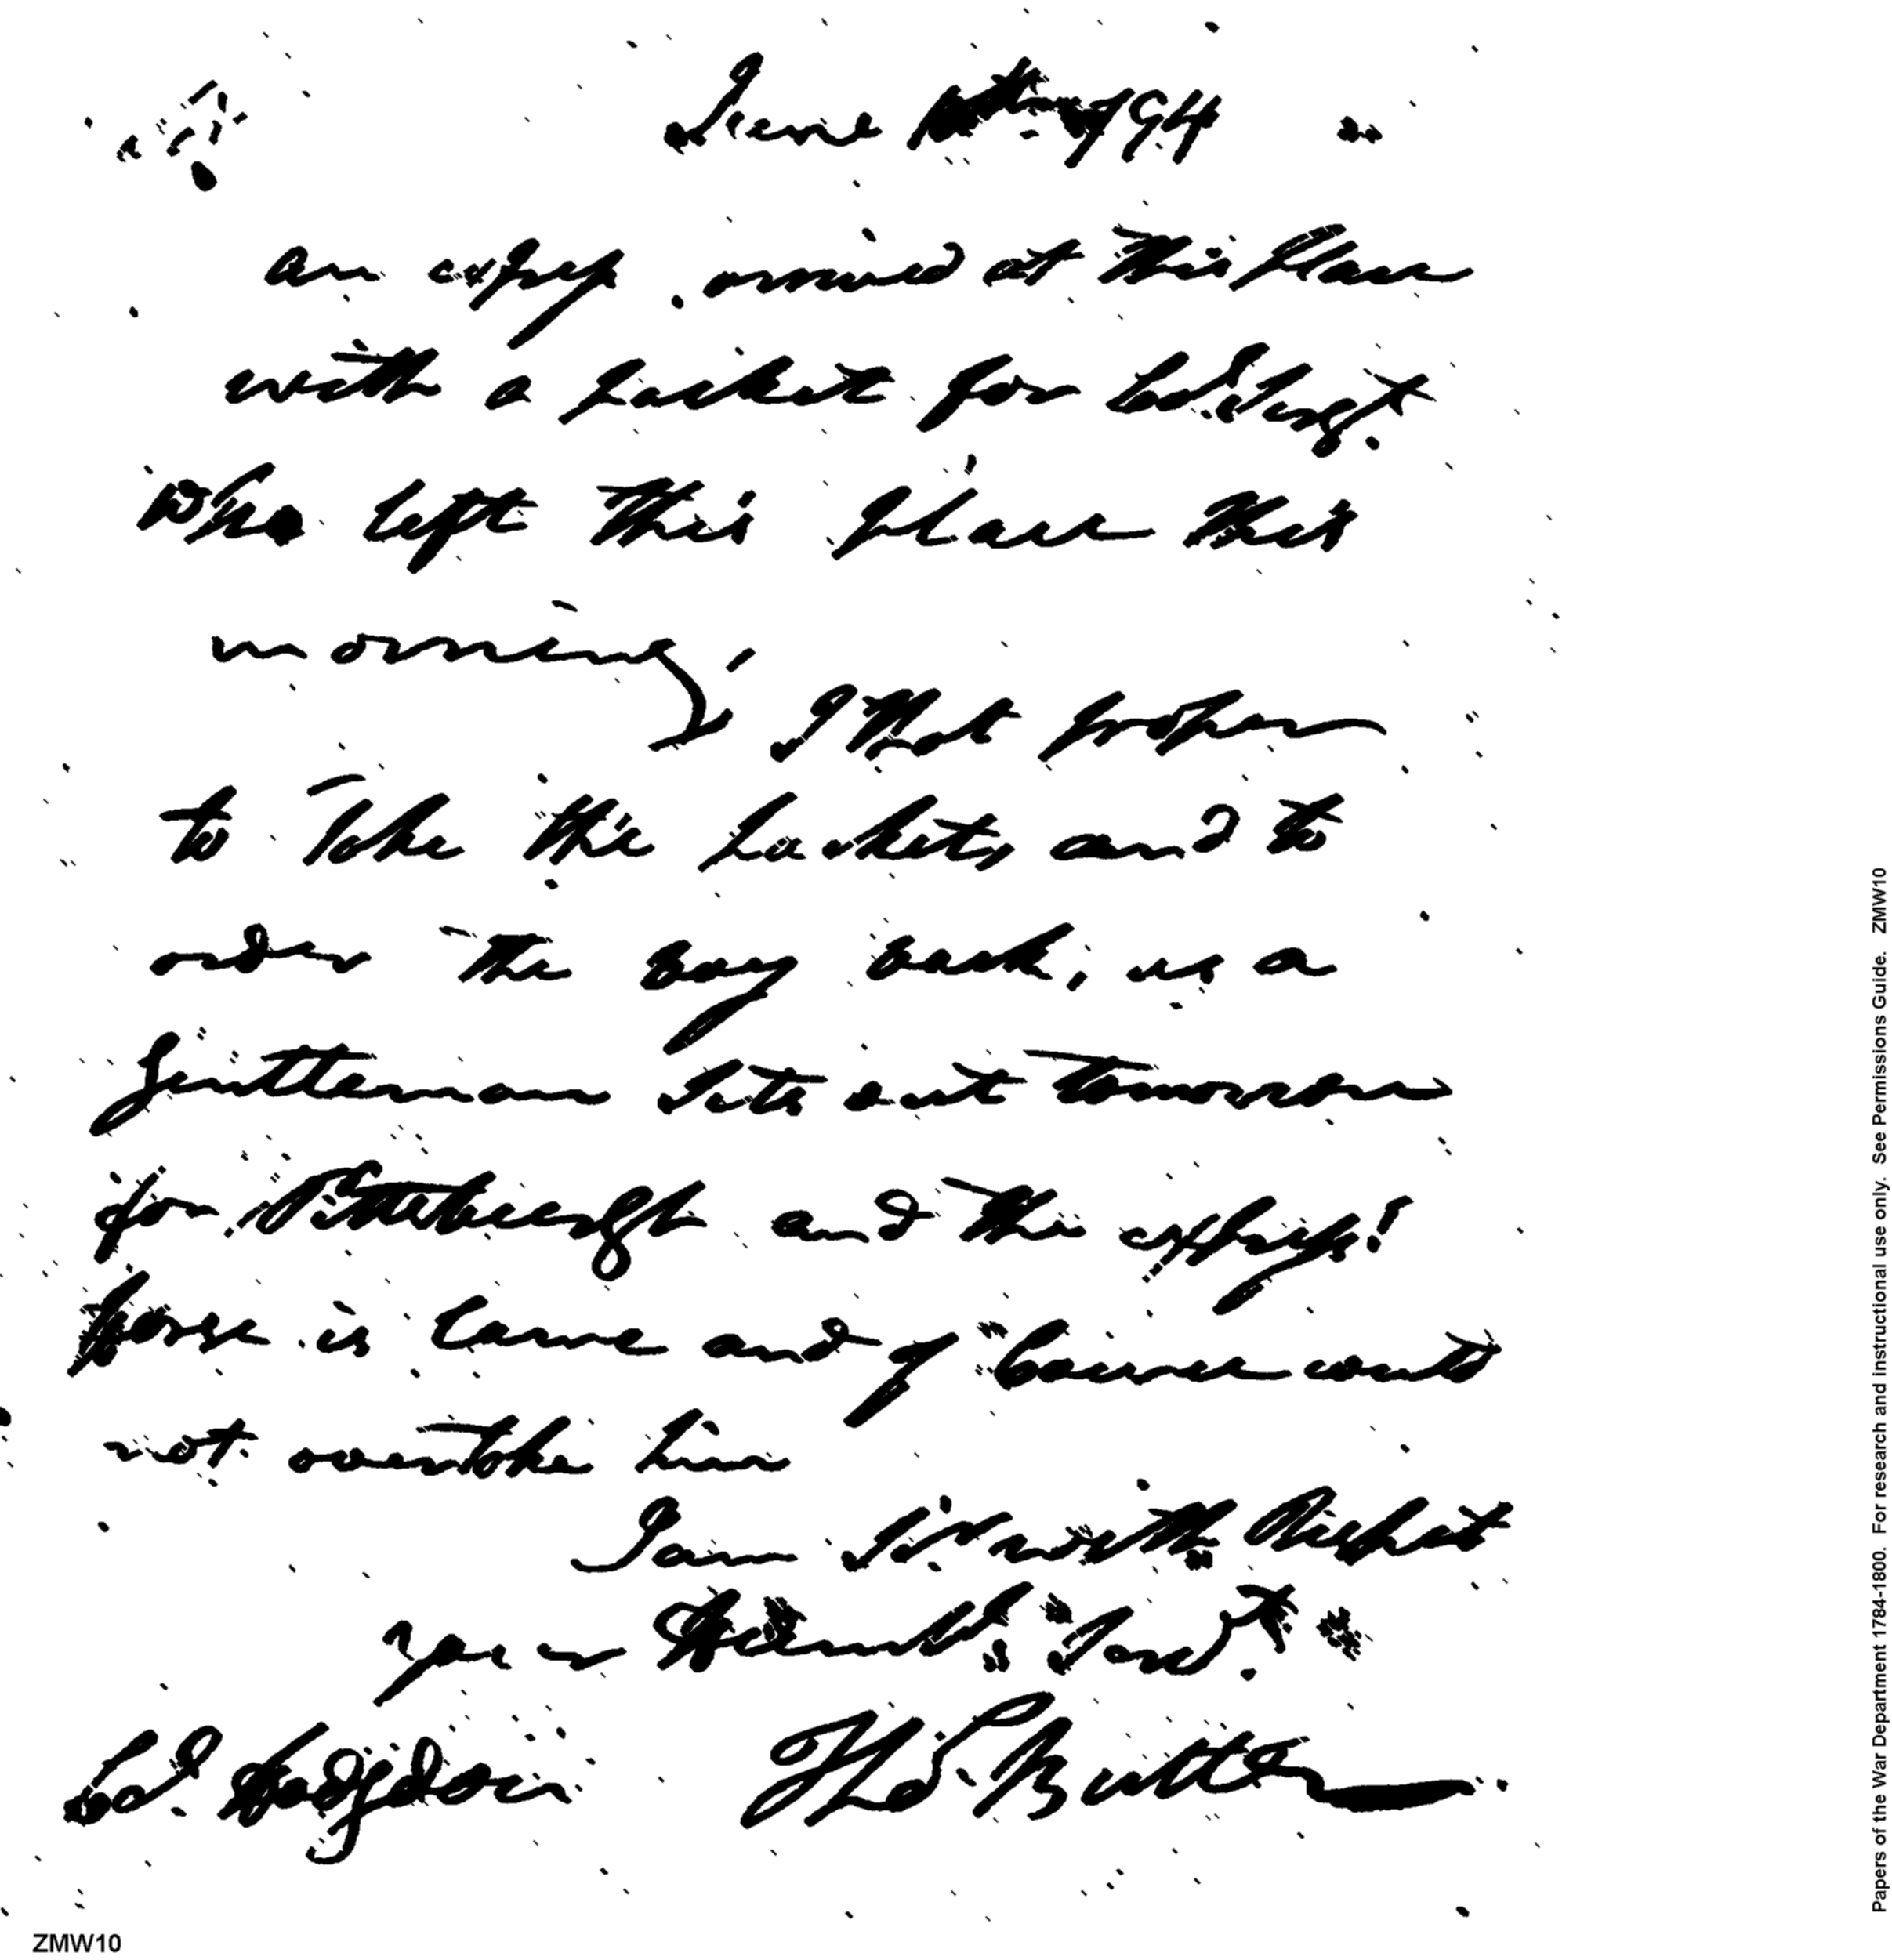 Sir June 1794
an express arrived at this place
with a packet for Col. Clark
who left this place this
morning, I thot proper
to Take the packet, and to
order the boy back, as a
Gentleman Sets out tomorrow
for Pittsburgh and the express'
horse is lame and of Course could
not overtake him
I am Sir with Respect
your Humble Servt.
Col. Hodgdon Tho. Butler
Papers of the War Department 1784-1800. For research and instructional use only. See Permissions Guide. ZMW10
ZMW10